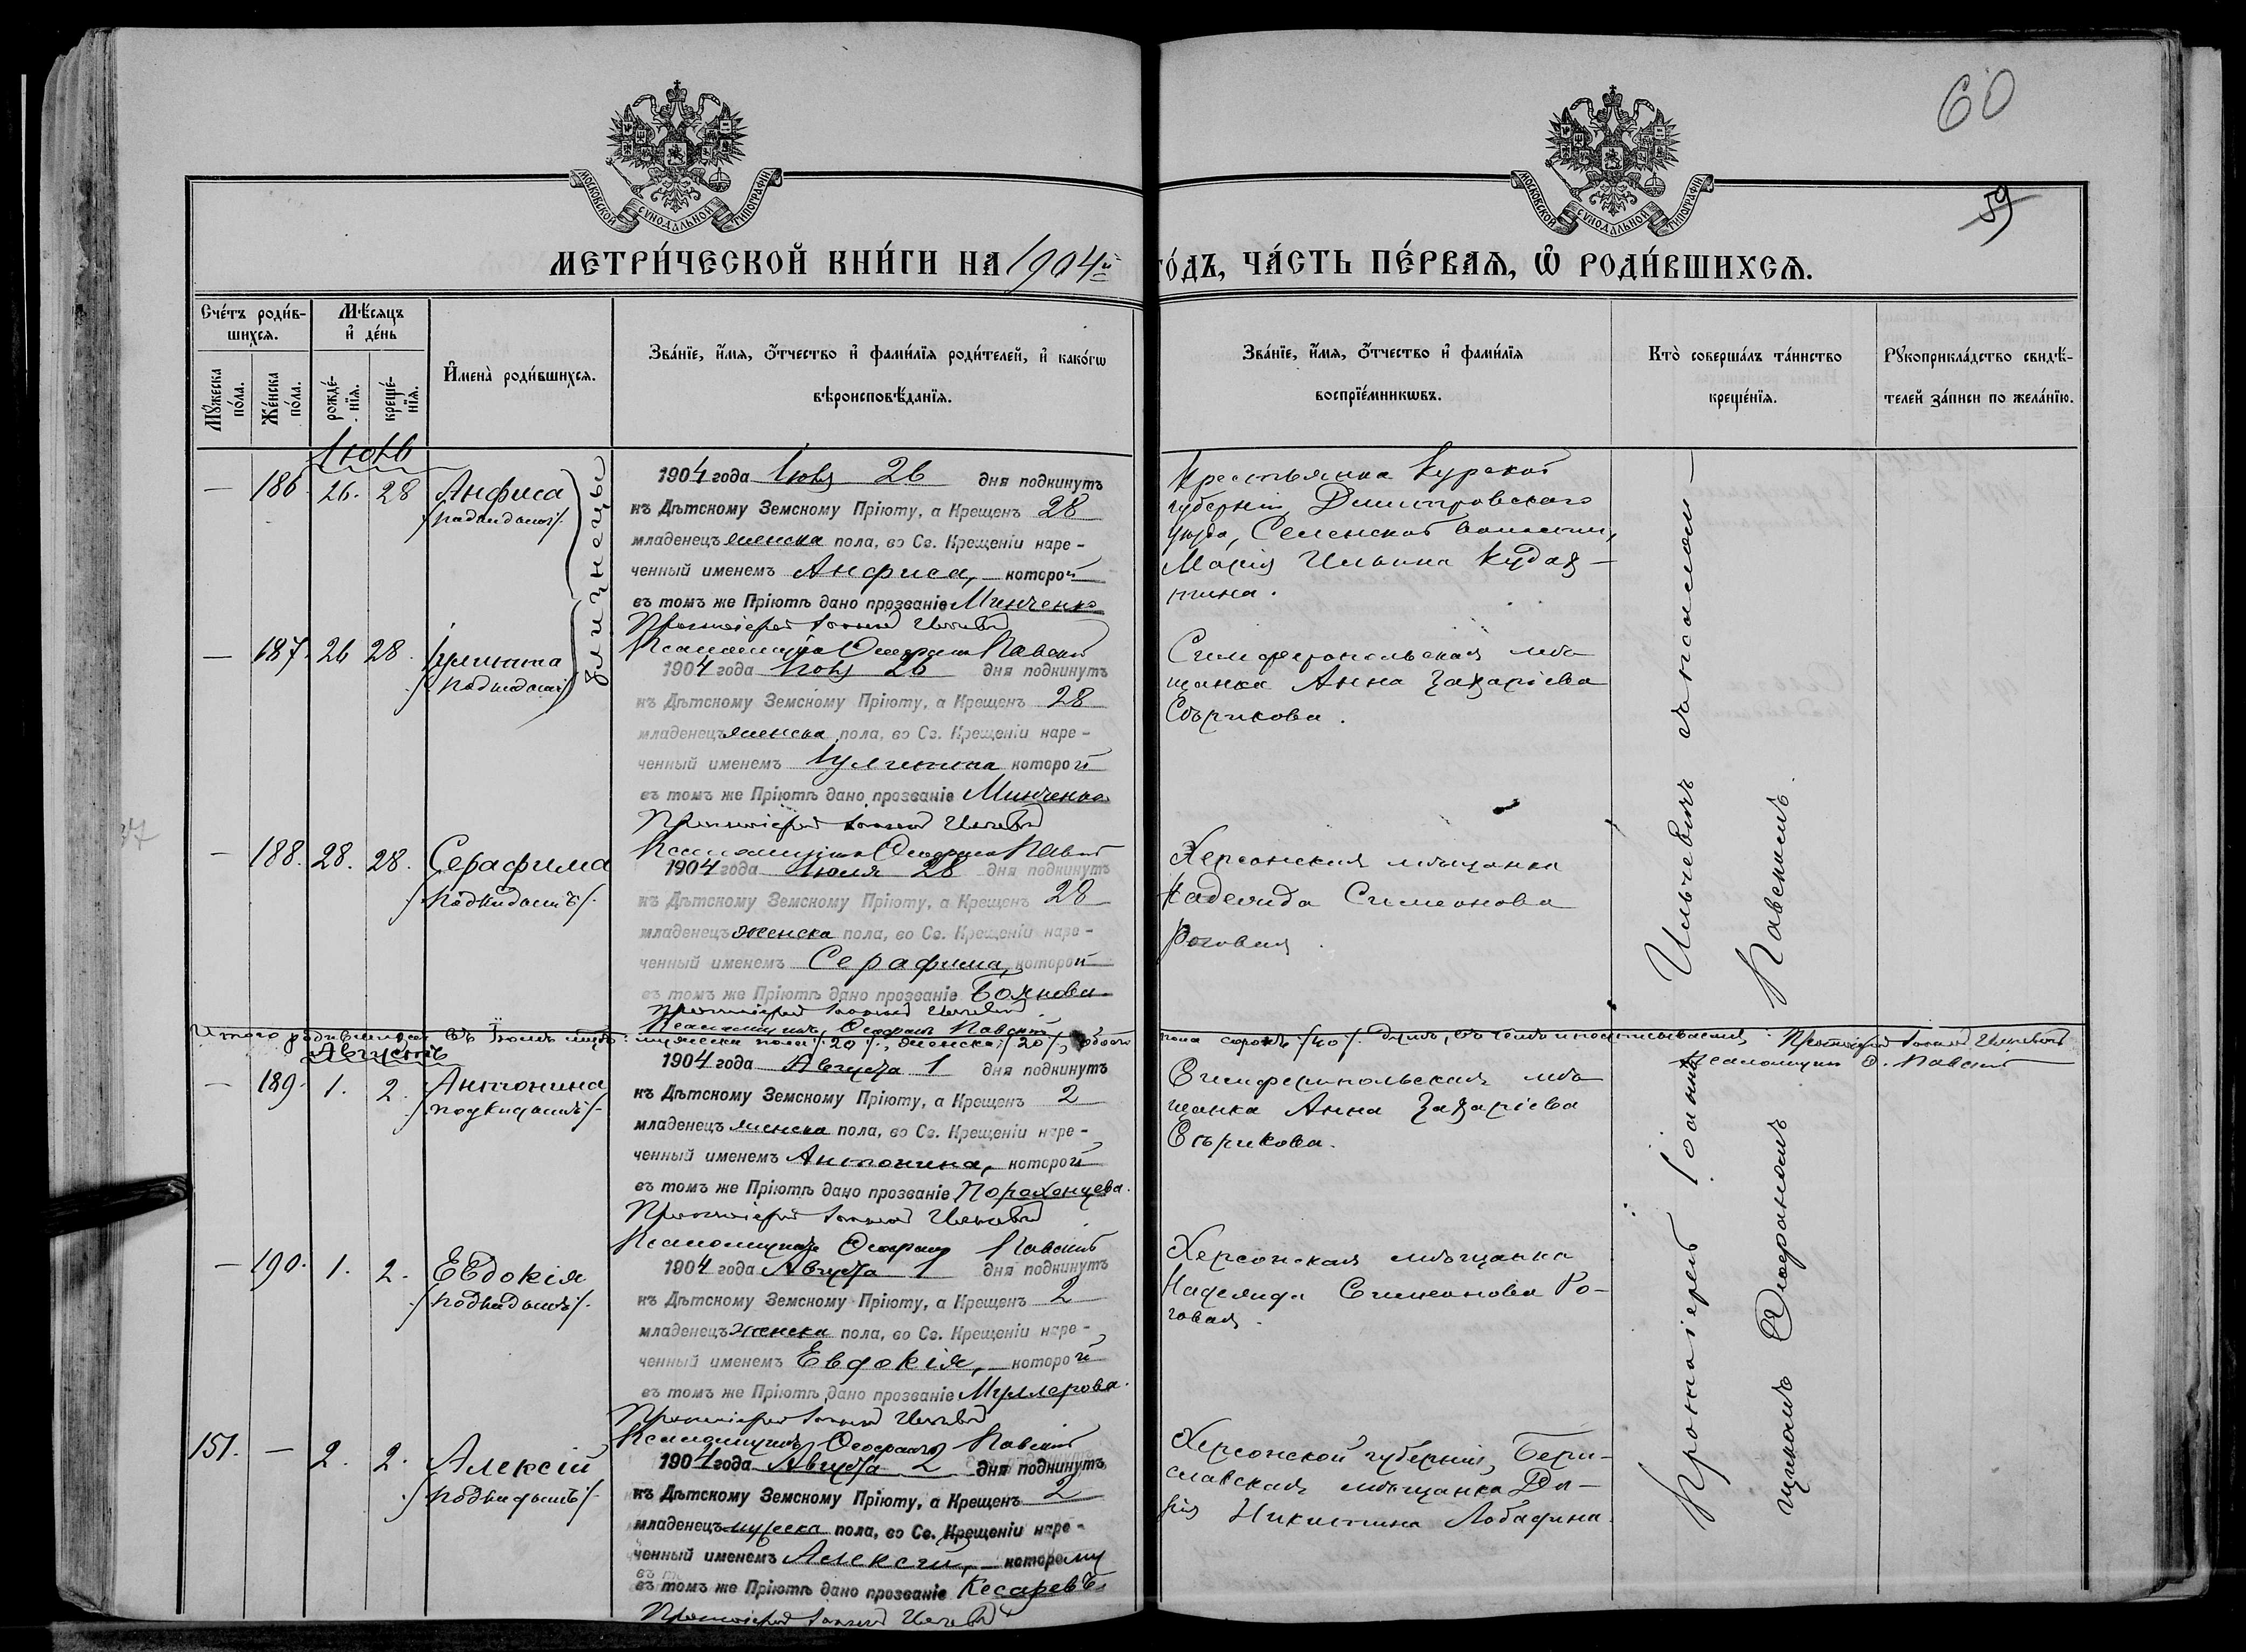 60
59
МОСКОВСКОЙ СУНОДАЛЬНОЙ ТИПОГРАФІИ
МОСКОВСКОЙ СУНОДАЛЬНОЙ ТИПОГРАФІИ
МЕТРИ́ЧЕСКОЙ КНИ́ГИ НА 1904й го́дъ, ЧА́СТЬ ПЕ́РВАѦ, Ѡ҆ РОДИ́ВШИХСѦ.
Сче́тъ роди́в-
шихсѧ.
Мѣ́сѧцъ
и҆ де́нь
Мꙋ́жеска по́ла.
Же́нска по́ла.
рожде́-
нїѧ.
креще́-
нїѧ.
И҆мена̀ роди́вшихсѧ.
Зва́нїе, и҆́мѧ, ѻ҆́тчество и҆ фами́лїѧ роди́телей, и҆ како́гѡ
вѣроисповѣ́данїѧ.
Зва́нїе, и҆́мѧ, ѻ҆́тчество и҆ фами́лїѧ
воспрїе́мникѡвъ.
Кто̀ соверша́лъ та́инство
креще́нїѧ.
Рꙋкоприкла́дство свидѣ́-
телей за́писи по жела́нїю.
Іюль
— 186. 26. 28 Анфиса
/подкидышъ/.
близнецы
1904 года Іюля 26 дня подкинутъ
къ Дѣтскому Земскому Пріюту, а Крещенъ 28
младенецъ женска пола, во Св. Крещеніи наре-
ченный именемъ Анфиса, которой
въ томъ же Пріютѣ дано прозваніе Минченко
Протоіерей Іоаннъ Ильчевъ
Псаломщикъ Ѳеофанъ Павскій
Крестьянка Курской
губерніи, Дмитровскаго
уѣзда, Селенской волости,
Марія Ильина
— 187. 26 28. Іулитта
/подкидышъ/
1904 года Іюля 26 дня подкинутъ
къ Дѣтскому Земскому Пріюту, а Крещенъ 28
младенецъ женска пола, во Св. Крещеніи наре-
ченный именемъ Іулитта которой
въ томъ же Пріютѣ дано прозваніе Минченко
Протоіерей Іоаннъ Ильчевъ
Псаломщикъ Ѳеофанъ Павскій
Симферопольская мѣ-
щанка Анна Захаріева
— 188. 28. 28. Серафима
/подкидышъ/.
1904 года Іюля 28 дня подкинутъ
къ Дѣтскому Земскому Пріюту, а Крещенъ 28
младенецъ женска пола, во Св. Крещеніи наре-
ченный именемъ Серафима, которой
въ томъ же Пріютѣ дано прозваніе Боянова
Протоіерей Іоаннъ Ильчевъ
Псаломщикъ Ѳеофанъ Павскій
Херсонская мѣщанка
Надежда Симеонова
Роговая.
Итого родившихся въ Іюлѣ мѣс.: мужеска пола /20/, женска /20/, обоего пола сорокъ /40/ душъ, въ чемъ и подписываемся: Протоіерей Іоаннъ Ильчевъ
Псаломщикъ Ѳ. Павскій
Августъ
— 189. 1. 2. Антонина
/подкидышъ/.
1904 года Августа 1 дня подкинутъ
къ Дѣтскому Земскому Пріюту, а Крещенъ 2
младенецъ женска пола, во Св. Крещеніи наре-
ченный именемъ Антонина, которой
въ томъ же Пріютѣ дано прозваніе Пораженцева.
Протоіерей Іоаннъ Ильчевъ
Псаломщикъ Ѳеофанъ Павскій
Симферопольская мѣ-
щанка Анна Захаріева
— 190. 1. 2. Евдокія
/подкидышъ/.
1904 года Августа 1 дня подкинутъ
къ Дѣтскому Земскому Пріюту, а Крещенъ 2
младенецъ женска пола, во Св. Крещеніи наре-
ченный именемъ Евдокія, которой
въ томъ же Пріютѣ дано прозваніе Муллерова.
Протоіерей Іоаннъ Ильчевъ
Псаломщикъ Ѳеофанъ Павскій
Херсонская мѣщанка
Надежда Симеонова Ро-
говая.
151. — 2. 2. Алексій
/подкидышъ/.
1904 года Августа 2 дня подкинутъ
къ Дѣтскому Земскому Пріюту, а Крещенъ 2
младенецъ мужеска пола, во Св. Крещеніи наре-
ченный именемъ Алексій, которому
въ томъ же Пріютѣ дано прозваніе Кесаревъ
Протоіерей Іоаннъ Ильчевъ
Херсонской губерніи, Бери-
славская мѣщанка Да-
рія Никитина
Протоіерей Іоаннъ Ильчевымъ съ псаломъ-
щикомъ Ѳеофаномъ Павскимъ.